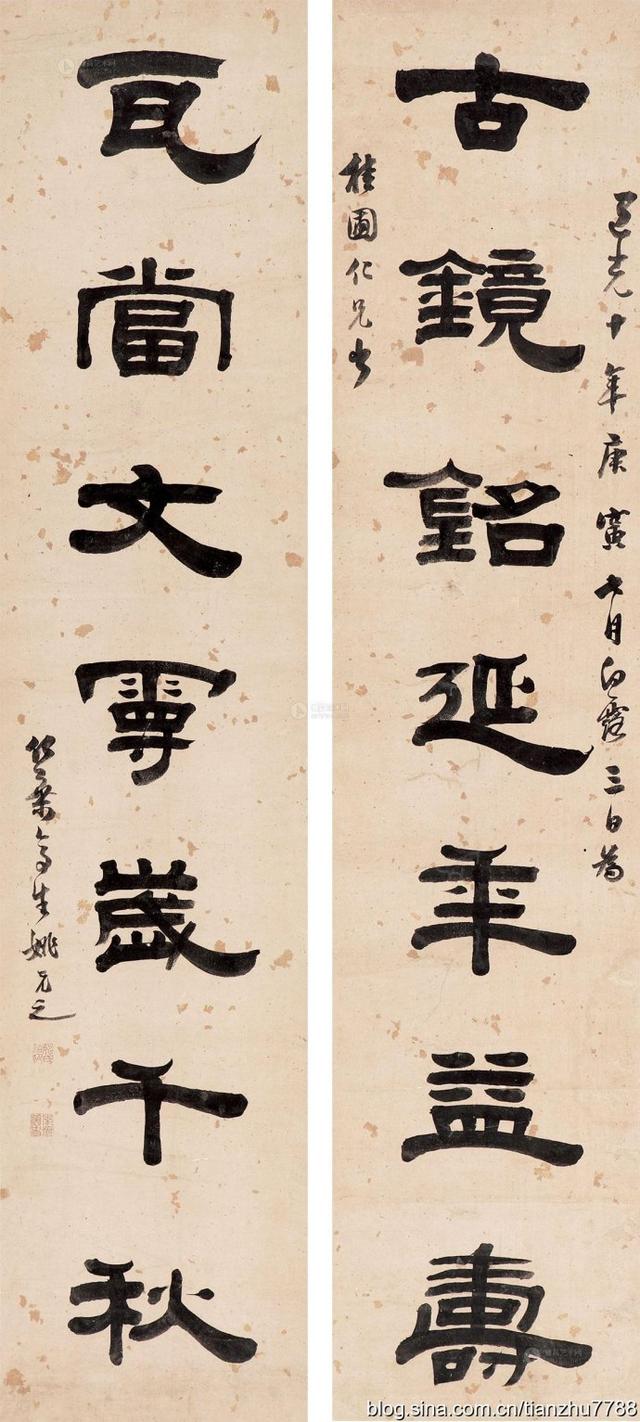 道光十年庚寅七月白露三日為
古鏡銘延年益壽
桂圃仁兄書
瓦當文歲千秋
竹葉亭生姚元之
blog.sina.com.cn/tianzhu7788